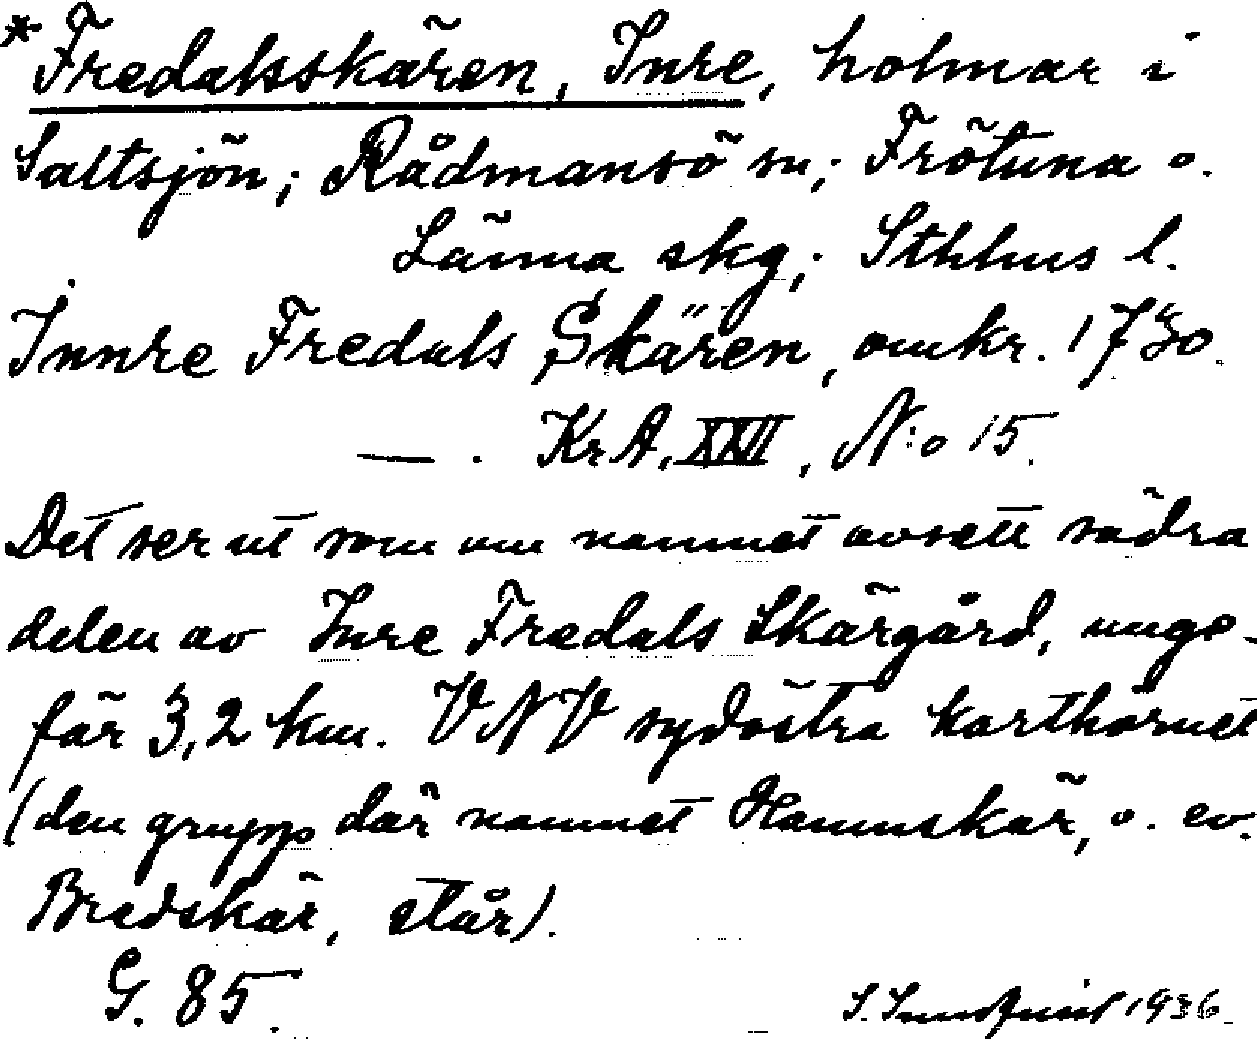 *Fredalsskären, Inre, holmar i
Saltsjön; Rådmansö sn; Frötuna o.
Länna skg; Sthlms l.
Innre Fredals Skären, omkr. 1730.
— . KrA, XXII, N:o 15.
Det ser ut som om namnet avsett södra
delen av Inre Fredals Skärgård, unge-
fär 3,2 km. VNV sydöstra karthörnet
(den grupp där namnet Hamnskär, o. ev.
Bredskär, står).
G. 85.
1936